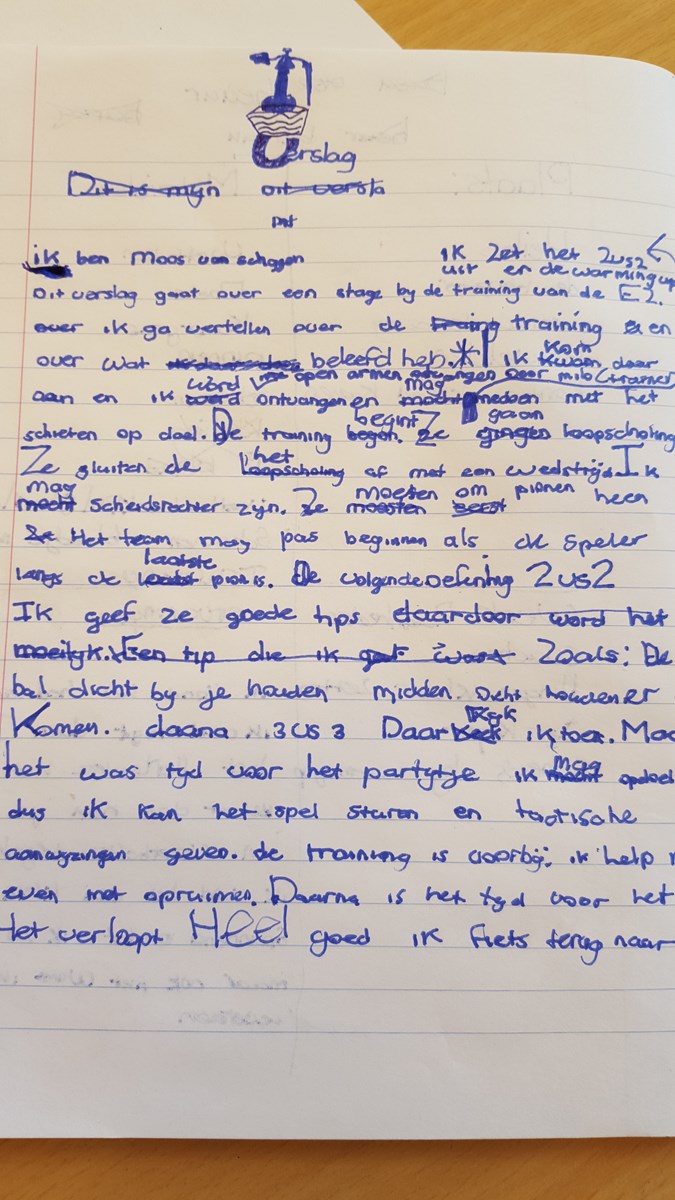 Verslag
Dit is mijn dit versla
ik ben Moos van schagen
ik zet het 2us2
uit en de warmingup
Dit verslag gaat over een stage by de training van de E2.
over ik ga vertellen over de traing training en
over wat beleefd heb. * ik kwam kom daar
word open armen ontvangen door mag (trainer)
aan en ik werd ontvangen en mocht meedoen met het
begint Ze gaan
schieten op doel. De training begon. Ze gingen loopscholing
Ze sluiten de het loopscholing af met een wedstrijd. Ik
mag moeten om pionen heen
mocht scheidsrechter zijn. Ze moesten eerst
Ze Het team mag pas beginnen als de speler
laatste
langs de laatst pion is. De volgende oefening 2us2
Ik geef ze goede tips daardoor word het
moeilyk. Een tip die ik gaf was Zoals: De
bal dicht by je houden midden. Dicht houden er
Kyk
Komen. daana 3us3 Daar keek ik toe.
mag
het was tyd voor het partytje ik mocht opdoel
dus ik kan het spel sturen en tactische
aanwyzingen geven. de training is voorbij, ik help
even met opruimen. Daarna is het tyd voor het
Het verloopt Heel goed ik fiets terug naar